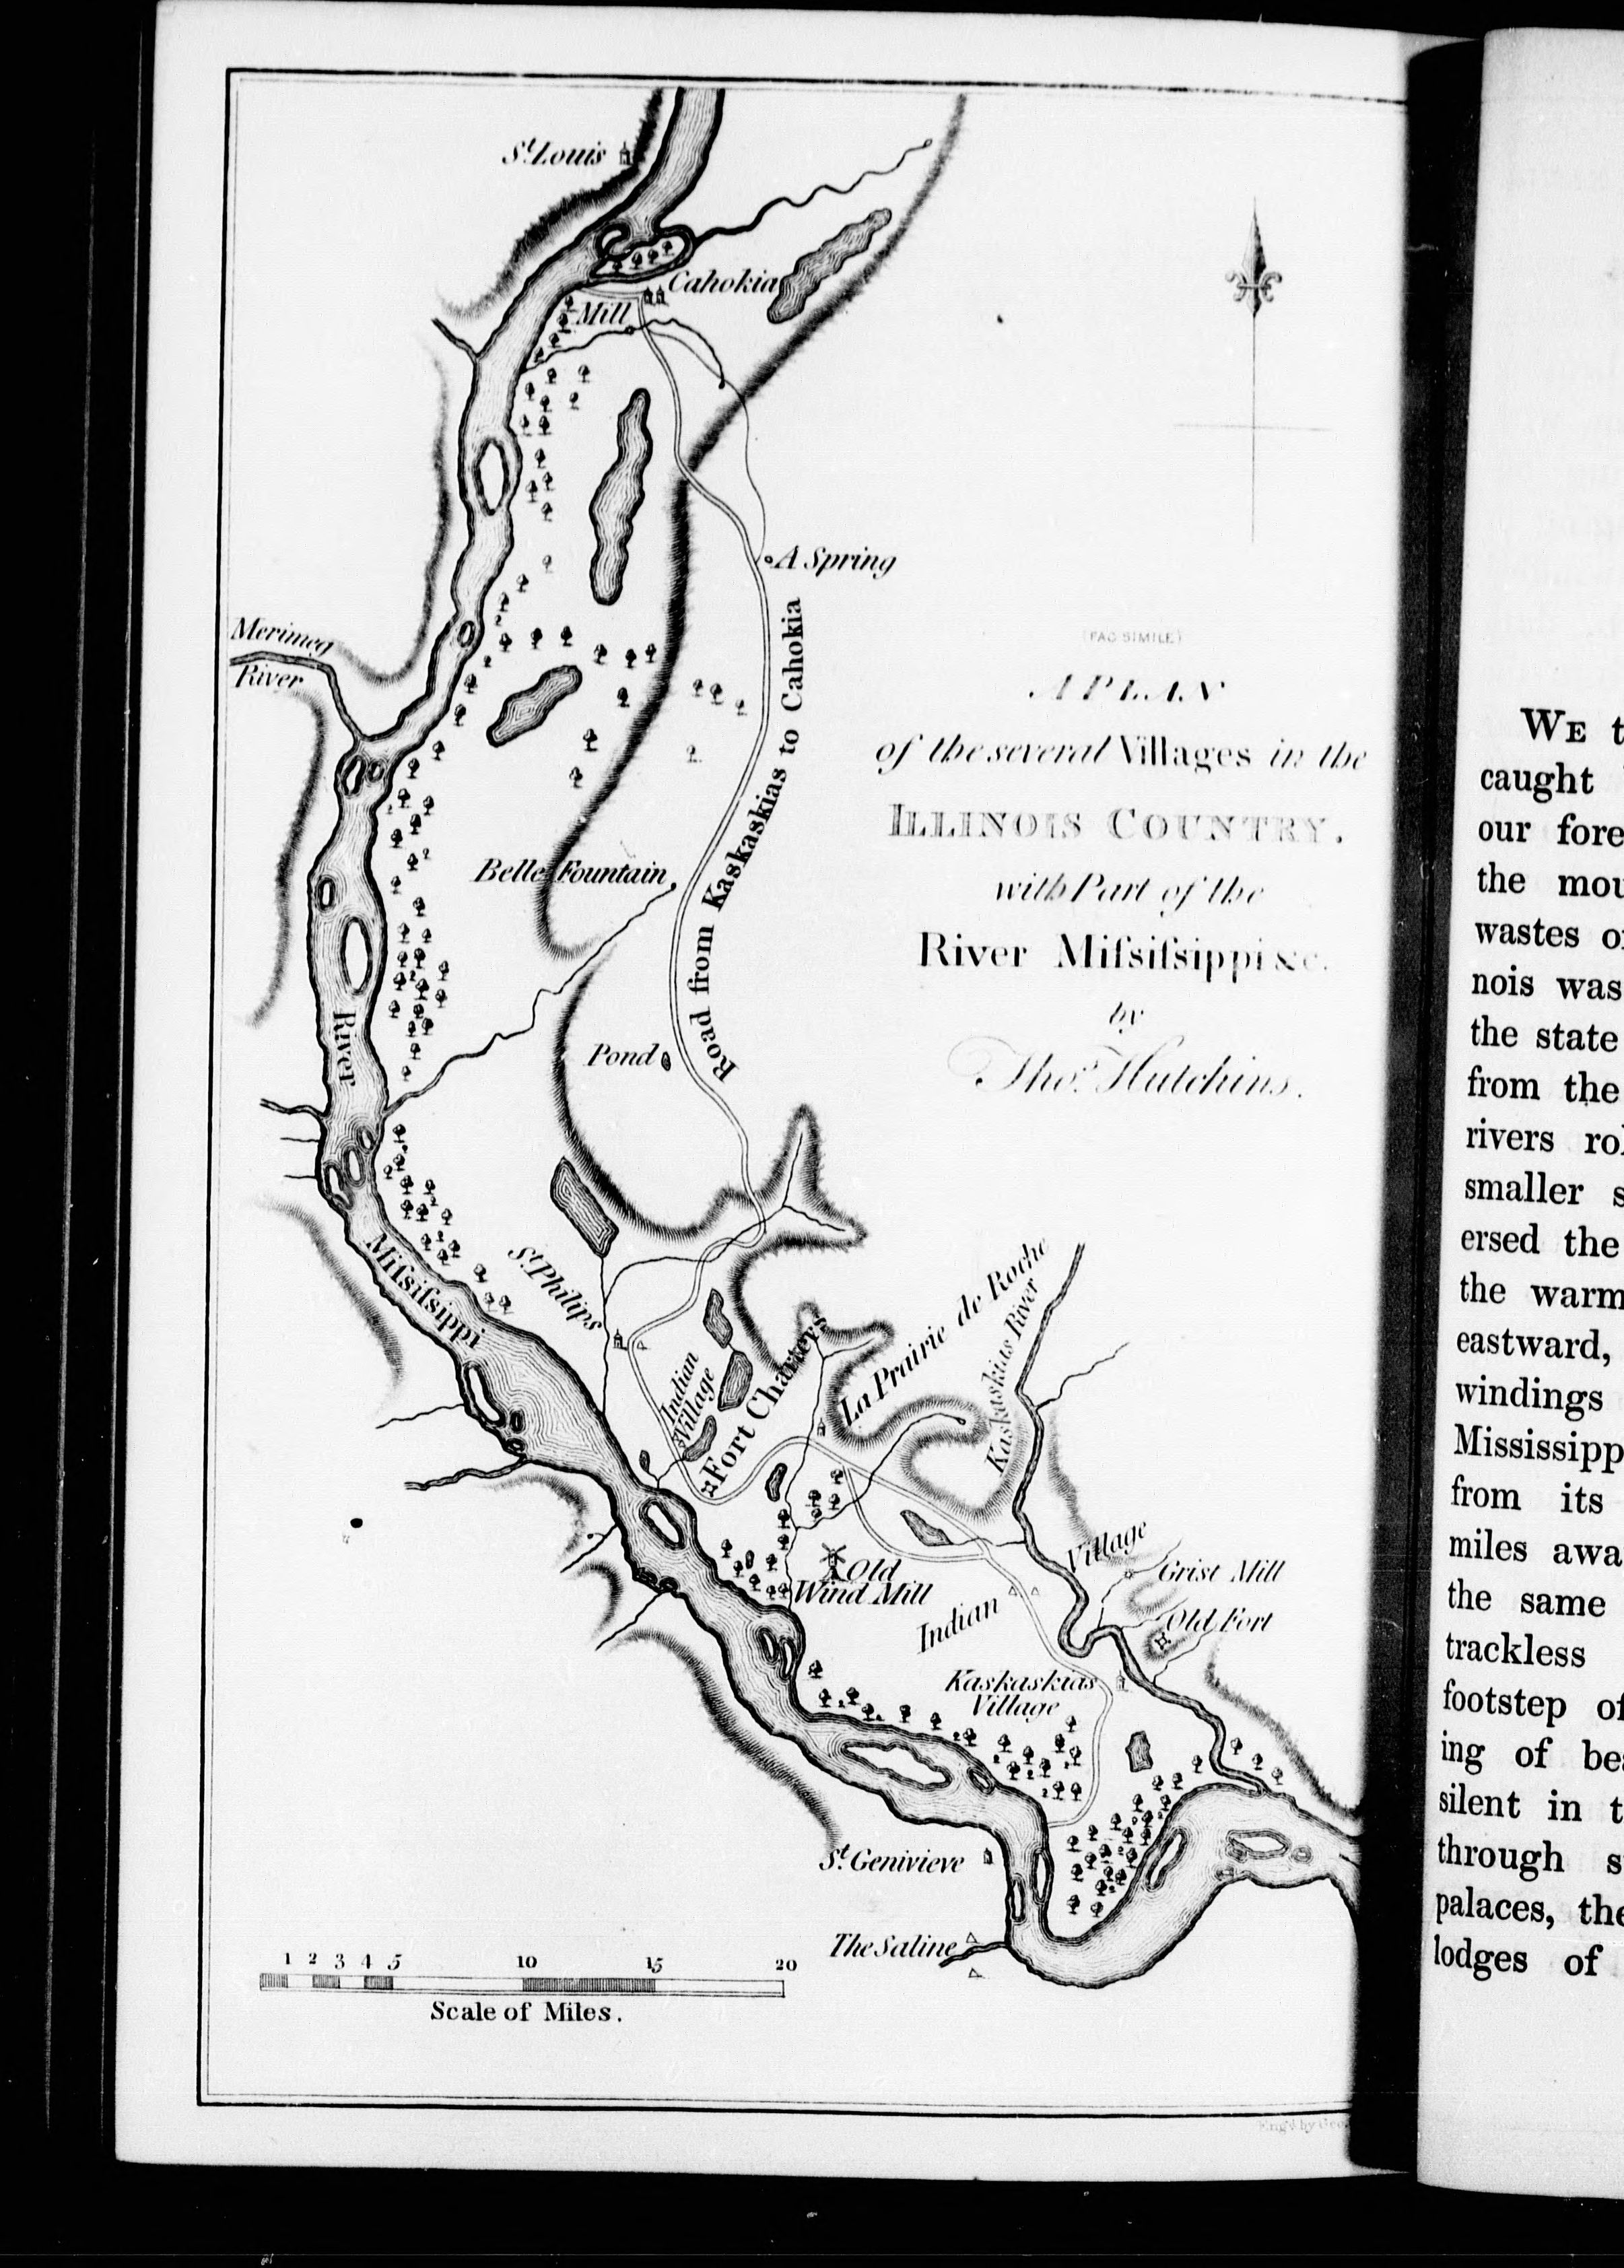 St. Louis
Cahokia
Mill
A Spring
Merimeg
River
Road from Kaskaskias to Cahokia
(FAC SIMILE)
A PLAN
of the several Villages in the
ILLINOIS COUNTRY,
with Part of the
River Miſsiſsippi &c.
by
Thos. Hutchins.
Belle Fountain
River
Pond
Miſsiſsippi
St. Philips
Indian
Village
Fort Charters
La Prairie de Roche
Kaskaskias River
Old
Wind Mill
Indian
Village
Grist Mill
Old Fort
Kaskaskias
Village
St. Genivieve
The Saline
1 2 3 4 5 10 15 20
Scale of Miles.
Engd. by
WE t
caught
our fore
the mou
wastes o
nois was
the state
from the
rivers rol
smaller s
ersed the
the warm
eastward,
windings
Mississipp
from its
miles awa
the same
trackless
footstep of
ing of bea
silent in t
through s
palaces, the
lodges of